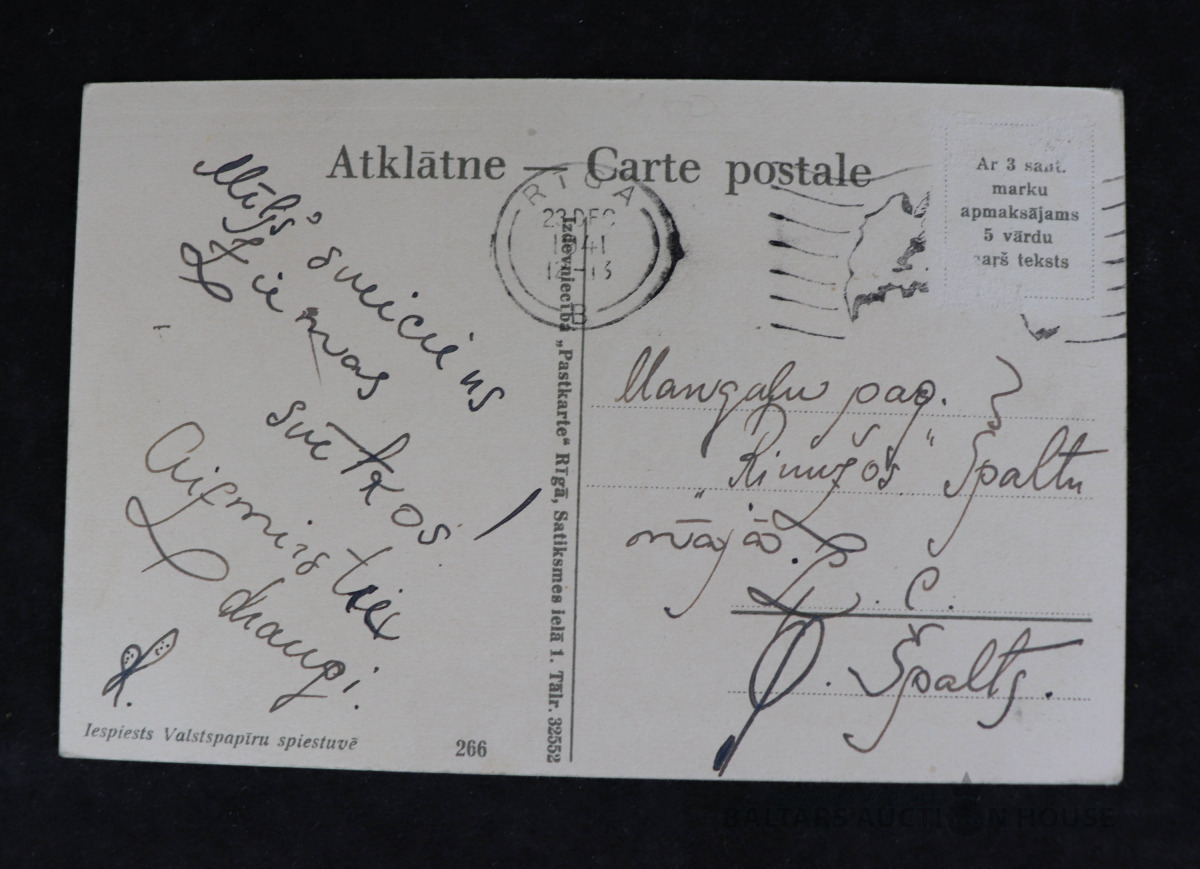 Atklātne — Carte postale
Mīļš sveiciens
Ziemas
svētkos
Aizmirstie
draugi.
Iespiests Valstspapīru spiestuvē
266
Izdevniecība „Pastkarte“ Rīgā, Satiksmes ielā 1. Tālr. 32552
RIGA
23 DEC
1941
12-13
B
Ar 3 sant.
marku
apmaksājams
5 vārdu
gaŗš teksts
Mangaļu pag.
„Rinužos“ Špaltu
mājā.
C.
Špalts.
BALTARS AUCTION HOUSE